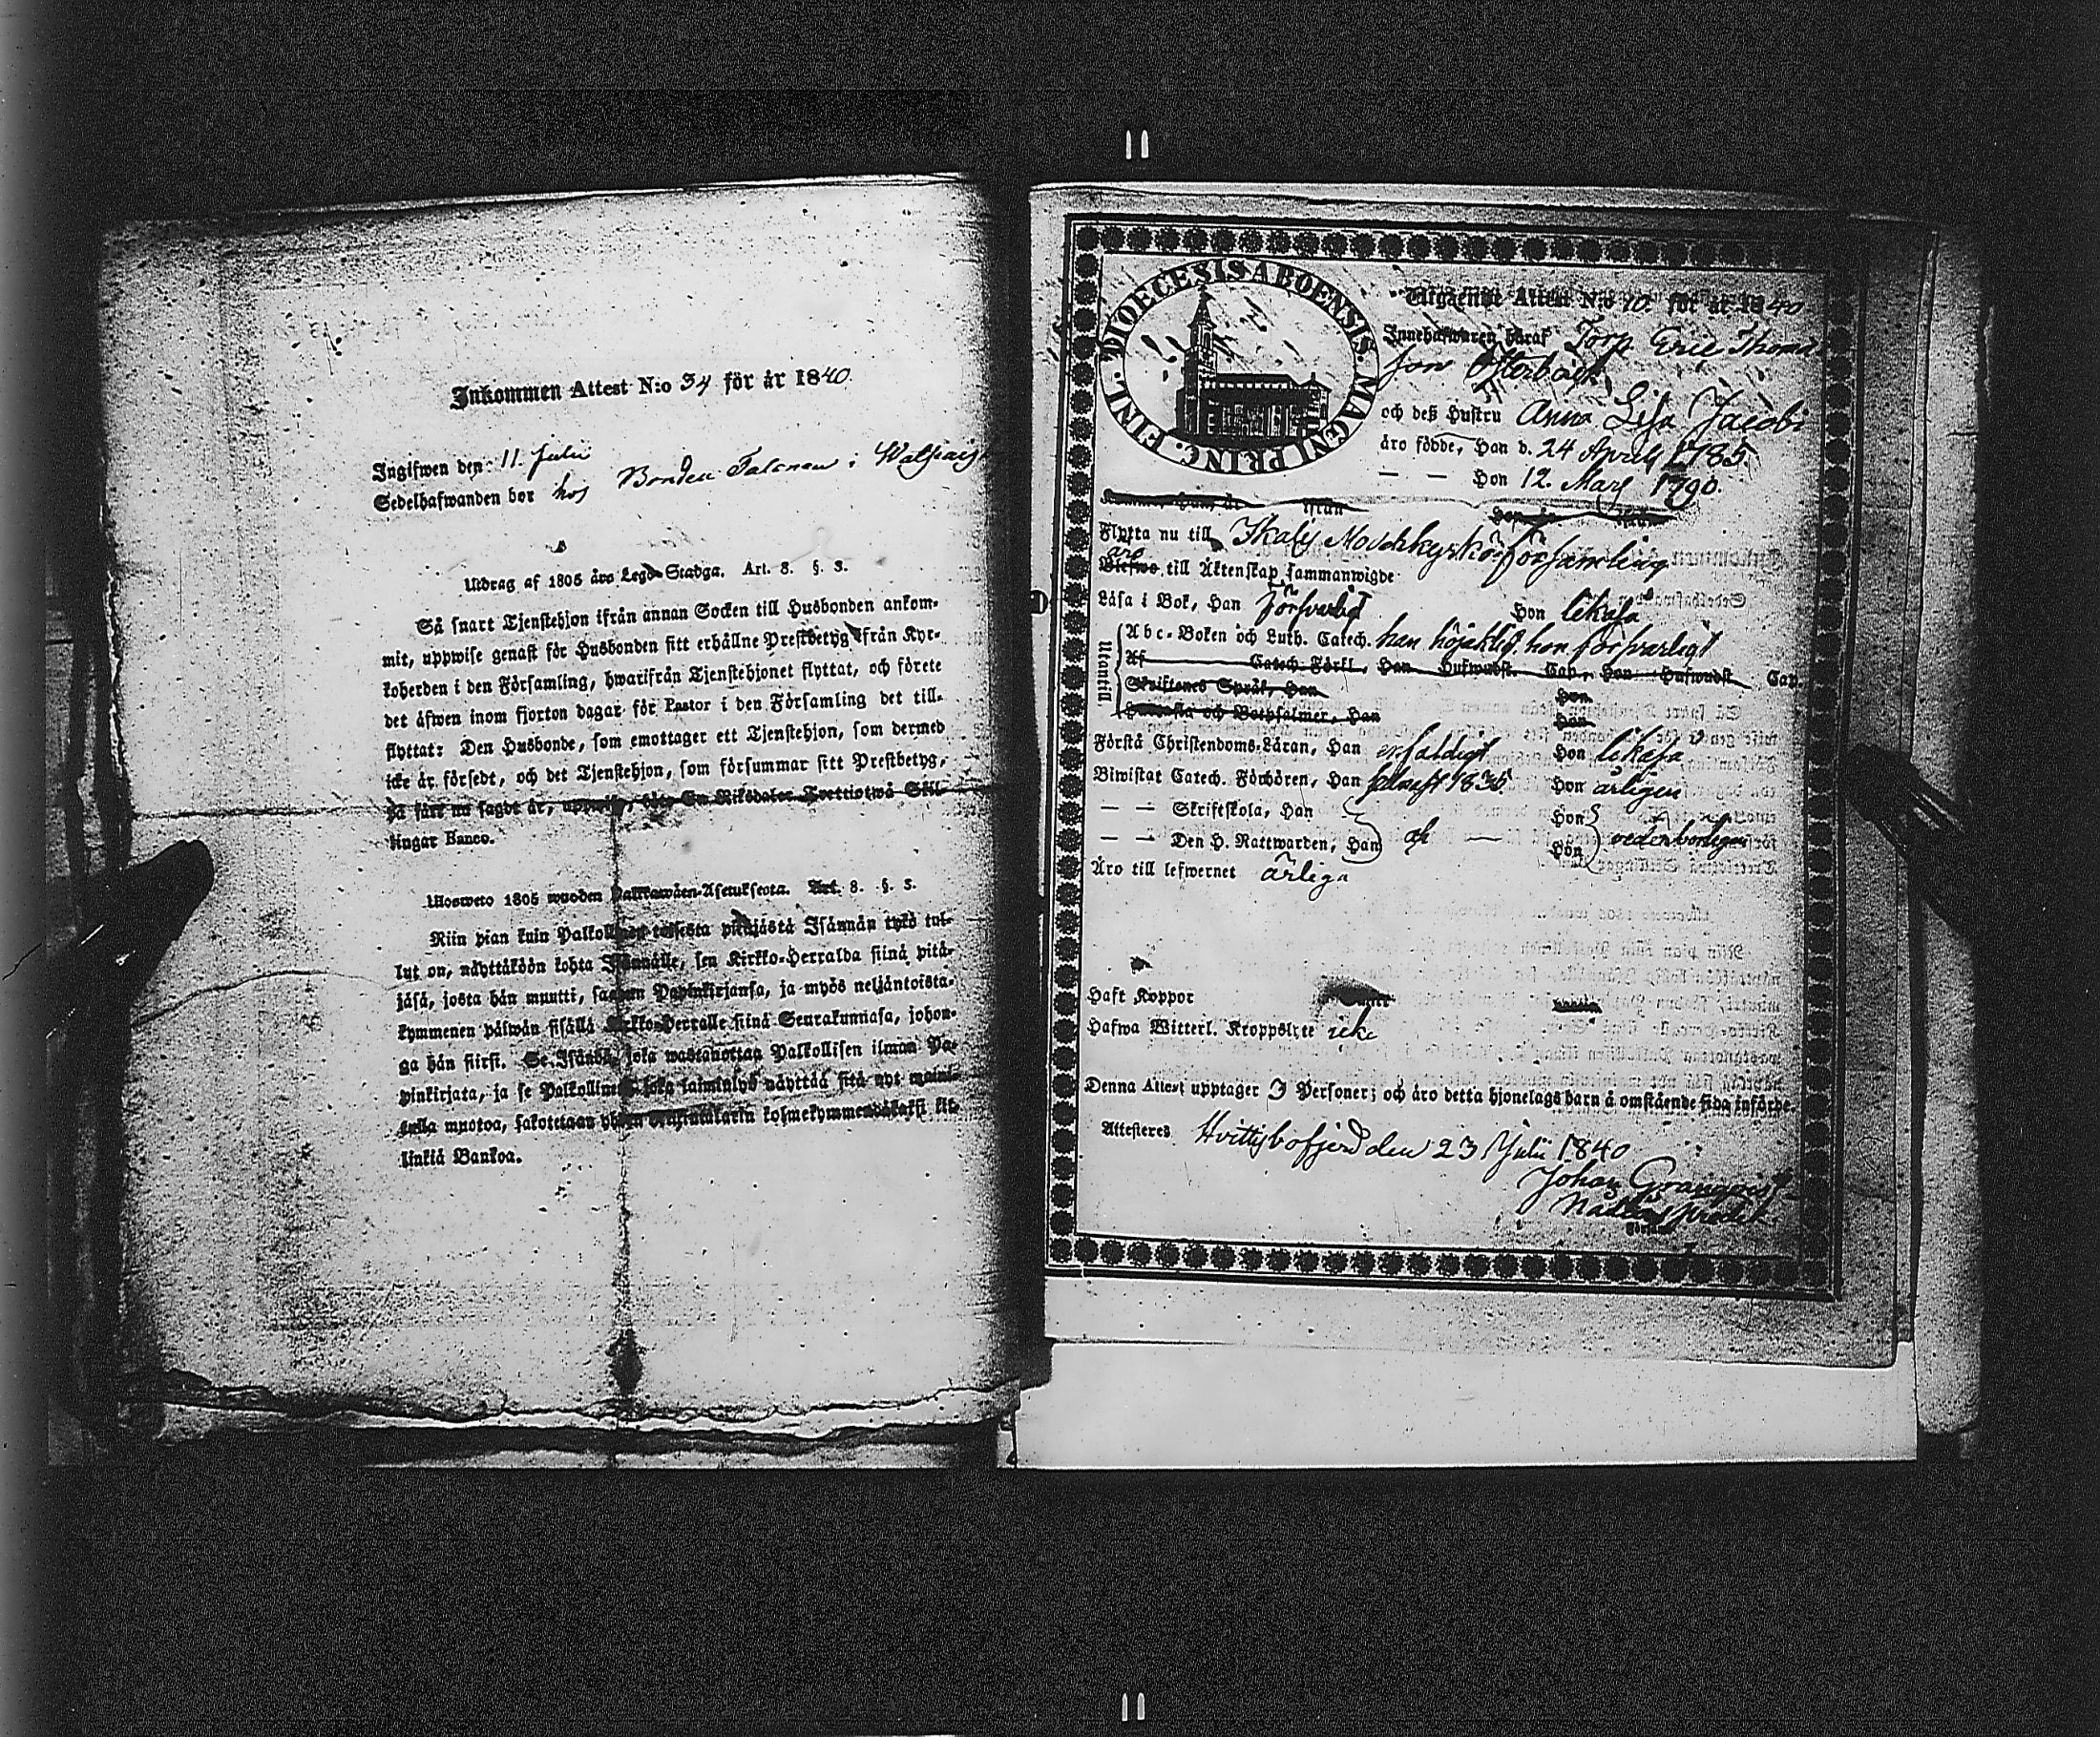 Inkommen Attest N:o 34 för år 1840.
Ingifwen den 11. Julii
Sedelhafwanden bor hos Bonden i
Utdrag af 1805 års Lego-Stadga. Art. 8. §. 3.
Så snart Tjenstehjon ifrån annan Socken till Husbonden ankom-
mit, uppwise genast för Husbonden sitt erhållne Prestbetyg ifrån Kyr-
koherden i den Församling, hwarifrån Tjenstehjonet flyttat, och förete
det äfwen inom fjorton dagar för Pastor i den Församling det till-
flyttat: Den Husbonde, som emottager ett Tjenstehjon, som dermed
icke är försedt, och det Tjenstehjon, som försummar sitt Prestbetyg,
på sätt nu sagdt är, uppwisa, böte En Riksdaler Trettiotwå Skil-
lingar Banco.
Ulosweto 1805 wuoden Palkkawäen-Asetuksesta. Art. 8. §. 3.
Niin pian kuin Palkollinen toisesta pitäjästä Isännän tykö tul-
lut on, näyttäköön kohta Isännälle, sen Kirkko-Herralda siinä pitä-
jäsä, josta hän muutti, saadun Papinkirjansa, ja myös neljäntoista-
kymmenen päiwän sisällä Kirkko-Herralle siinä Seurakunnasa, johon-
ga hän siirsi. Se Isändä, joka wastanottaa Palkollisen ilman Pa-
pinkirjata, ja se Palkollinen joka laiminlyö näyttää sitä nyt maini-
tulla muotoa, sakotetaan yhden kolmekymmendäkaksi kil-
linkiä Bankoa.
DIOECESIS ABOENSIS. MAGNI PRINC. FINL.
Utgående Attest N:o 10. för år 1840
Innehafwaren häraf Torp. Eric Thoma
son Österback
och deß Hustru Anna Lisa Jacobs
äro födde, Han d. 24 April 1785.
— — Hon 12. Mars 1790.
Flytta nu till Ikalis Församling
äro
Blefwo till Äktenskap sammanwigde
Läsa i Bok, Han försvarligt Hon likaså
Utantill
Abc-Boken och Luth. Catech. han höjakligt, hon försvarligt
Af Catech. Förkl., Han Hufwudst. Cap., Hon Hufwudst. Cap.
Skriftenes Språk, Han Hon
och Botpsalmer, Han Hon
Förstå Christendoms-Läran, Han enfaldigt Hon likaså
Biwistat Catech. Förhören, Han 1835. Hon årligen
— — Skriftskola, Han Hon
— — Den H. Nattwarden, Han Hon vederbörligen
Äro till lefwernet ärliga
Haft Koppor
Hafwa Witterl. Kroppslyte icke
Denna Attest upptager 3 Personer; och äro detta hjonelags barn å omstående sida införde.
Attesteres Hvittisbofjerd den 23 Julii 1840
Johan Granqvist